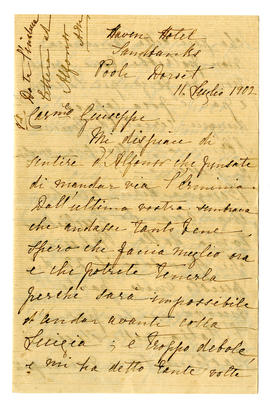 Haven Hotel
Sandbanks
Poole Dorset
11 Luglio 1902
Carmo Giuseppe
Mi dispiace di
sentire d'Alfonso che pensate
di mandar via l'Erminia.
Dall'ultima vostra sembrava
che andasse tanto bene,
spero che faccia meglio ora
e che potrete tenerla
perchè sarà impossibile
d'andar avanti colla
Luigia; è troppo debole,
e mi ha detto tante volte